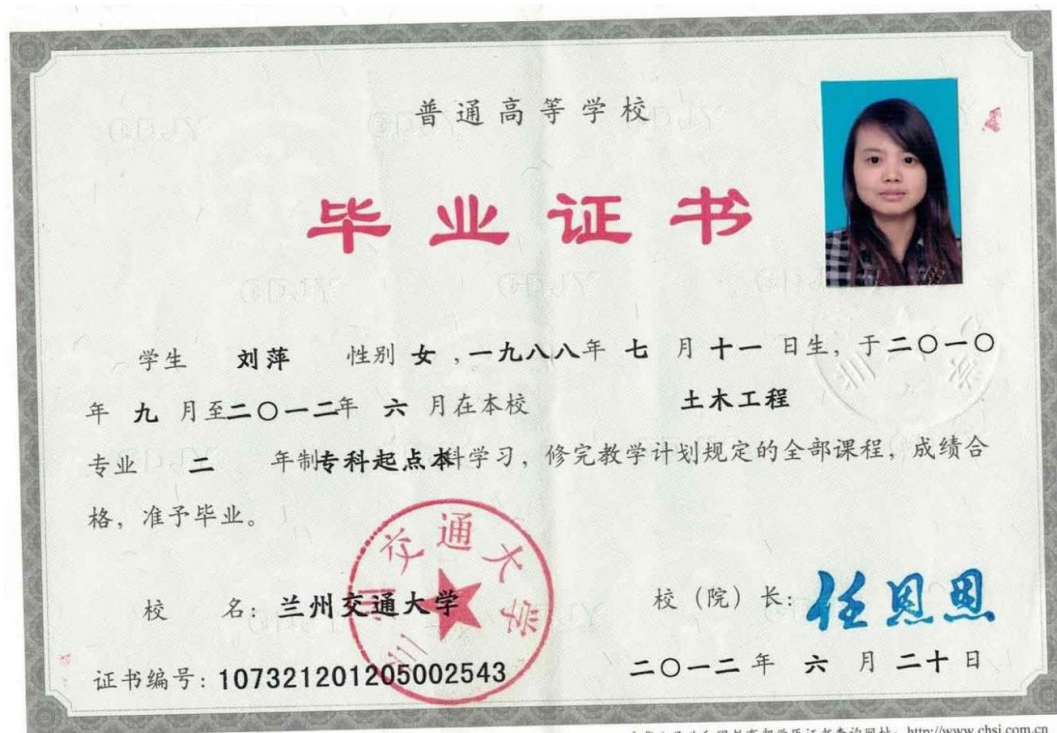 普通高等学校
毕业证书
学生 刘萍 性别 女 ,一九八八年 七 月 十一 日生, 于二〇一〇
年 九 月至二〇一二年 六 月在本校 土木工程
专业 二 年制专科起点本科学习, 修完教学计划规定的全部课程, 成绩合
格, 准予毕业。
兰州交通大学
校 名: 兰州交通大学 校 (院) 长: 任恩恩
证书编号: 107321201205002543 二〇一二 年 六 月 二十 日
查询网址: http://www.chsi.com.cn